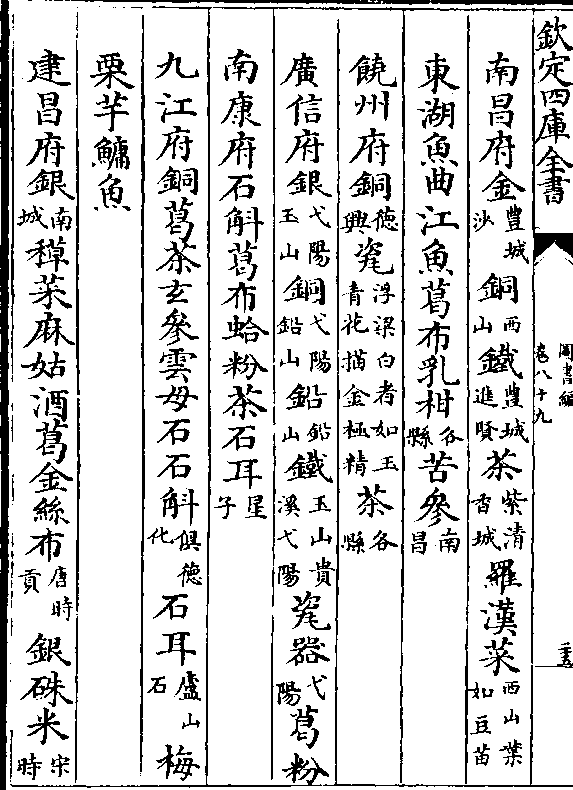 欽定四庫全書
圖書編
卷八十九
南昌府金豐城沙銅西山鐵豐城進賢茶紫清香城羅漢菜西山葉如豆苗
東湖魚曲江魚葛布乳柑各縣苦參南昌
饒州府銅德興瓷浮梁白者如玉青花描金極精茶各縣
廣信府銀弋陽玉山銅弋陽鉛山鉛鉛山鐵玉山貴溪弋陽瓷器弋陽葛粉
南康府石斛葛布蛤粉茶石耳星子
九江府銅葛茶玄參雲母石石斛俱德化石耳廬山石梅
栗芋鱅魚
建昌府銀南城菜麻姑酒葛金絲布唐時貢銀硃米宋時